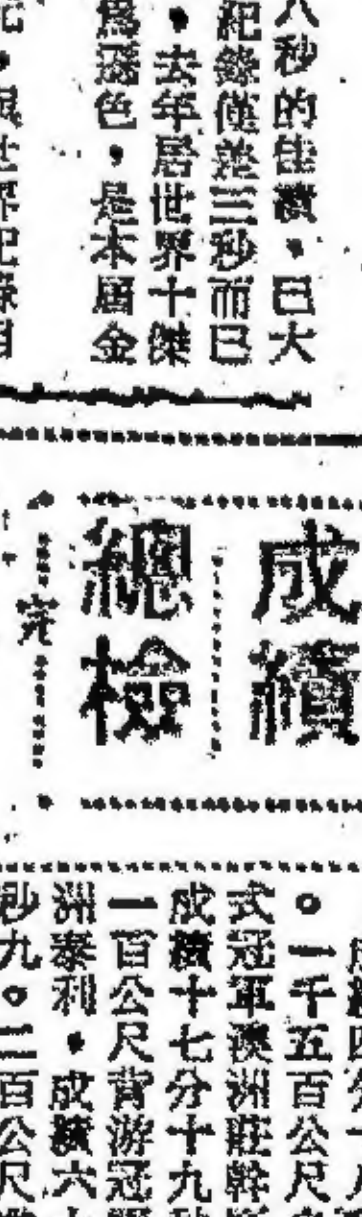 八秒的佳績，已大
紀錄僅差三秒而已
，去年居世界十傑
為遜色，是本屆金
成績
總檢
完
。一千五百公尺
式冠軍澳洲莊幹
成績十七分十九
一百公尺背游冠
洲泰利，成績六
秒九。二百公尺